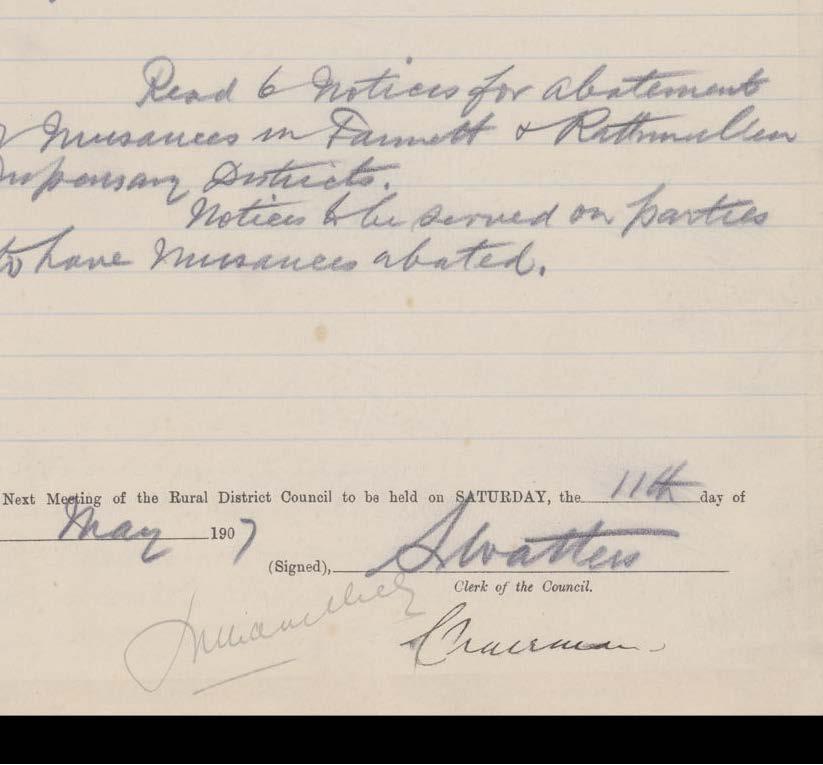 Read 6 Notices for abatement
Nuisances in Fannett & Rathmullen
Dispensary Districts.
Notices to be served on parties
to have Nuisances abated.
Next Meeting of the Rural District Council to be held on SATURDAY, the 11th day of
May 1907
(Signed), S Watters
Clerk of the Council.
Chairman